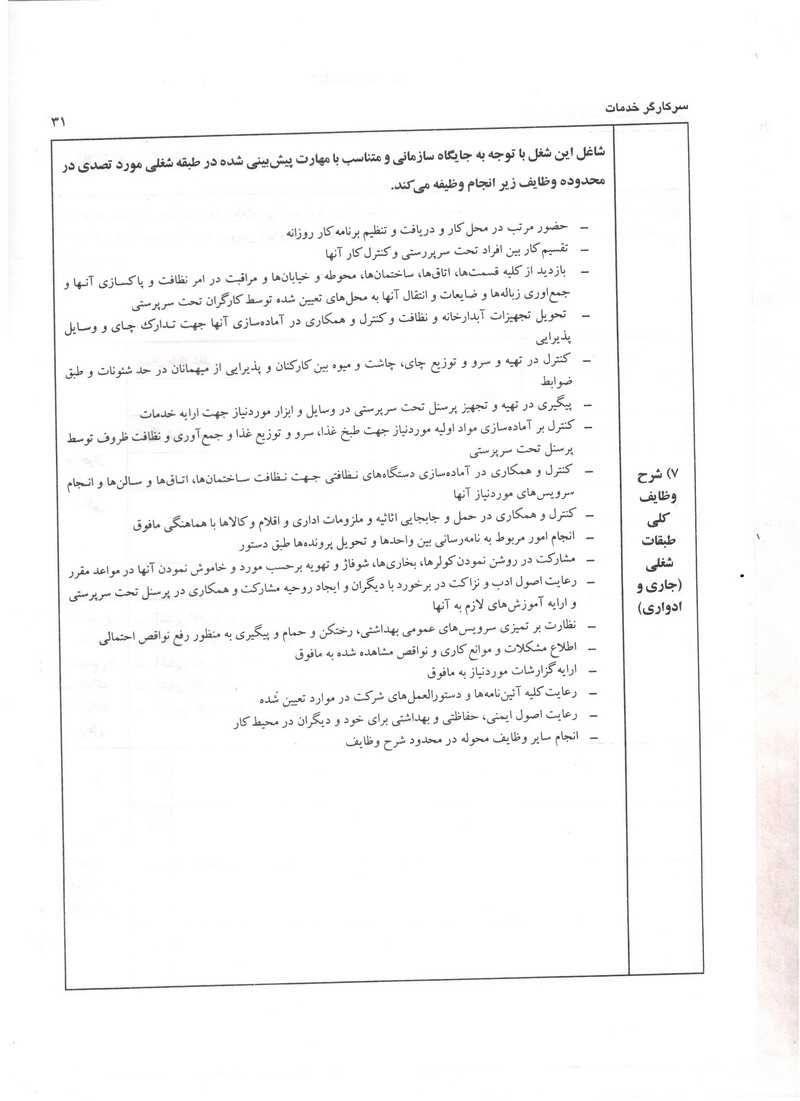 سرکارگر خدمات
۳۱
۷) شرح
وظایف
کلی
طبقات
شغلی
(جاری و
ادواری)
شاغل این شغل با توجه به جایگاه سازمانی و متناسب با مهارت پیش‌بینی شده در طبقه شغلی مورد تصدی در
محدوده وظایف زیر انجام وظیفه می‌کند.
– حضور مرتب در محل کار و دریافت و تنظیم برنامه کار روزانه
– تقسیم کار بین افراد تحت سرپررستی و کنترل کار آنها
– بازدید از کلیه قسمت‌ها، اتاق‌ها، ساختمان‌ها، محوطه و خیابان‌ها و مراقبت در امر نظافت و پاکسازی آنها و
جمع‌اوری زباله‌ها و ضایعات و انتقال آنها به محل‌های تعیین شده توسط کارگران تحت سرپرستی
– تحویل تجهیزات آبدارخانه و نظافت و کنترل و همکاری در آماده‌سازی آنها جهت تدارک چای و وسایل
پذیرایی
– کنترل در تهیه و سرو و توزیع چای، چاشت و میوه بین کارکنان و پذیرایی از میهمانان در حد شئونات و طبق
ضوابط
– پیگیری در تهیه و تجهیز پرسنل تحت سرپرستی در وسایل و ابزار موردنیاز جهت ارایه خدمات
– کنترل بر آماده‌سازی مواد اولیه موردنیاز جهت طبخ غذا، سرو و توزیع غذا و جمع‌آوری و نظافت ظروف توسط
پرسنل تحت سرپرستی
– کنترل و همکاری در آماده‌سازی دستگاه‌های نظافتی جهت نظافت ساختمان‌ها، اتاق‌ها و سالن‌ها و انجام
سرویس‌های موردنیاز آنها
– کنترل و همکاری در حمل و جابجایی اثاثیه و ملزومات اداری و اقلام و کالاها با هماهنگی مافوق
– انجام امور مربوط به نامه‌رسانی بین واحدها و تحویل پرونده‌ها طبق دستور
– مشارکت در روشن نمودن کولرها، بخاری‌ها، شوفاژ و تهویه برحسب مورد و خاموش نمودن آنها در مواعد مقرر
– رعایت اصول ادب و نزاکت در برخورد با دیگران و ایجاد روحیه مشارکت و همکاری در پرسنل تحت سرپرستی
و ارایه آموزش‌های لازم به آنها
– نظارت بر تمیزی سرویس‌های عمومی بهداشتی، رختکن و حمام و پیگیری به منظور رفع نواقص احتمالی
– اطلاع مشکلات و موانع کاری و نواقص مشاهده شده به مافوق
– ارایه گزارشات موردنیاز به مافوق
– رعایت کلیه آئین‌نامه‌ها و دستورالعمل‌های شرکت در موارد تعیین شده
– رعایت اصول ایمنی، حفاظتی و بهداشتی برای خود و دیگران در محیط کار
– انجام سایر وظایف محوله در محدود شرح وظایف